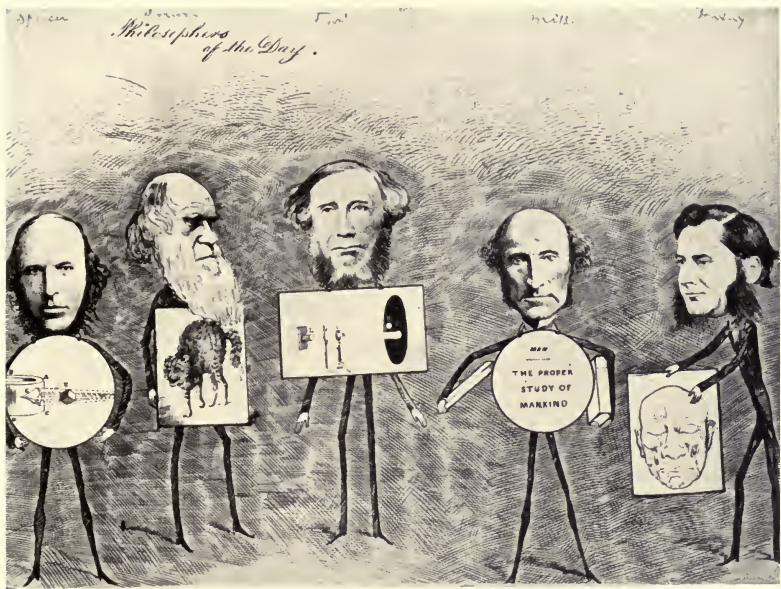 mill.
Philosophers
of the Day.
MAN
THE PROPER
STUDY OF
MANKIND